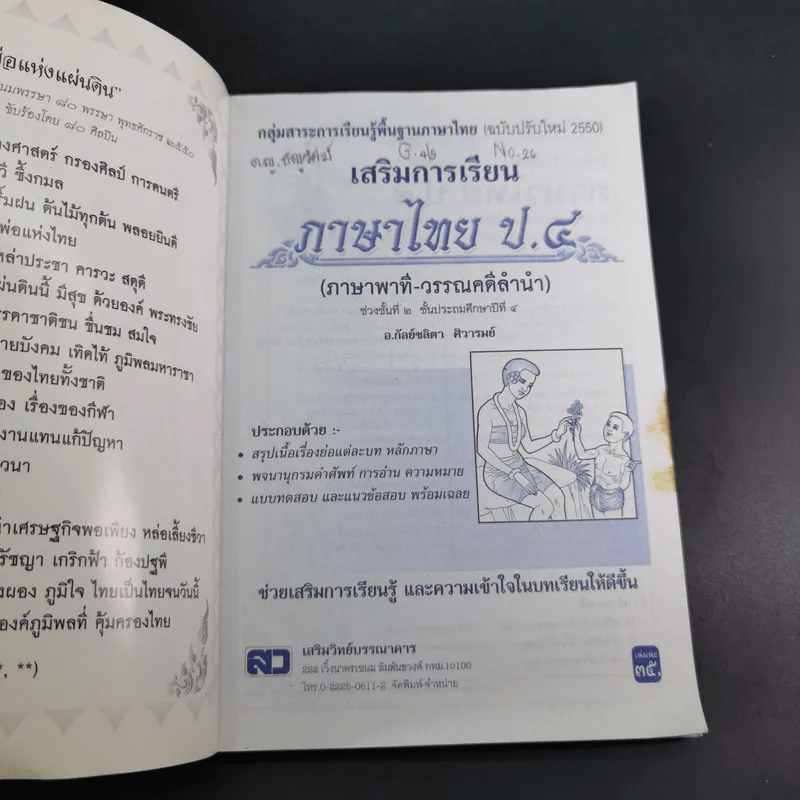 อแห่งแผ่นดิน"
นมพรรษา ๘๐ พรรษา พุทธศักราช ๒๕๕๐
ขับร้องโดย ๘๐ ศิลปิน
องศาสตร์ กรองศิลป์ การดนตรี
วี ซึ้งกมล
ร็มฝน ต้นไม้ทุกต้น พลอยยินดี
พ่อแห่งไทย
หล่าประชา คารวะ สดุดี
ผ่นดินนี้ มีสุข ด้วยองค์ พระทรงชัย
รดาชาติชน ชื่นชม สมใจ
ายบังคม เทิดไท้ ภูมิพลมหาราชา
ของไทยทั้งชาติ
อง เรื่องของกีฬา
งานแทนแก้ปัญหา
วนา
เศรษฐกิจพอเพียง หล่อเลี้ยงชีวา
รัชญา เกริกฟ้า ก้องปฐพี
งผอง ภูมิใจ ไทยเป็นไทยจนวันนี้
องค์ภูมิพลที่ คุ้มครองไทย
*, **)
กลุ่มสาระการเรียนรู้พื้นฐานภาษาไทย (ฉบับปรับใหม่ 2550)
ด.ญ. G.4/5 No.26
เสริมการเรียน
ภาษาไทย ป.๔
(ภาษาพาที-วรรณคดีลำนำ)
ช่วงชั้นที่ ๒ ชั้นประถมศึกษาปีที่ ๔
อ.กัลย์ชลิตา ศิวารมย์
ประกอบด้วย :-
• สรุปเนื้อเรื่องย่อแต่ละบท หลักภาษา
• พจนานุกรมคำศัพท์ การอ่าน ความหมาย
• แบบทดสอบ และแนวข้อสอบ พร้อมเฉลย
ช่วยเสริมการเรียนรู้ และความเข้าใจในบทเรียนให้ดีขึ้น
สว
เสริมวิทย์บรรณาคาร
222 เวิ้งนาครเขษม สัมพันธวงศ์ กทม.10100
โทร.0-2225-0611-2 จัดพิมพ์-จำหน่าย
เล่มละ
๓๕.